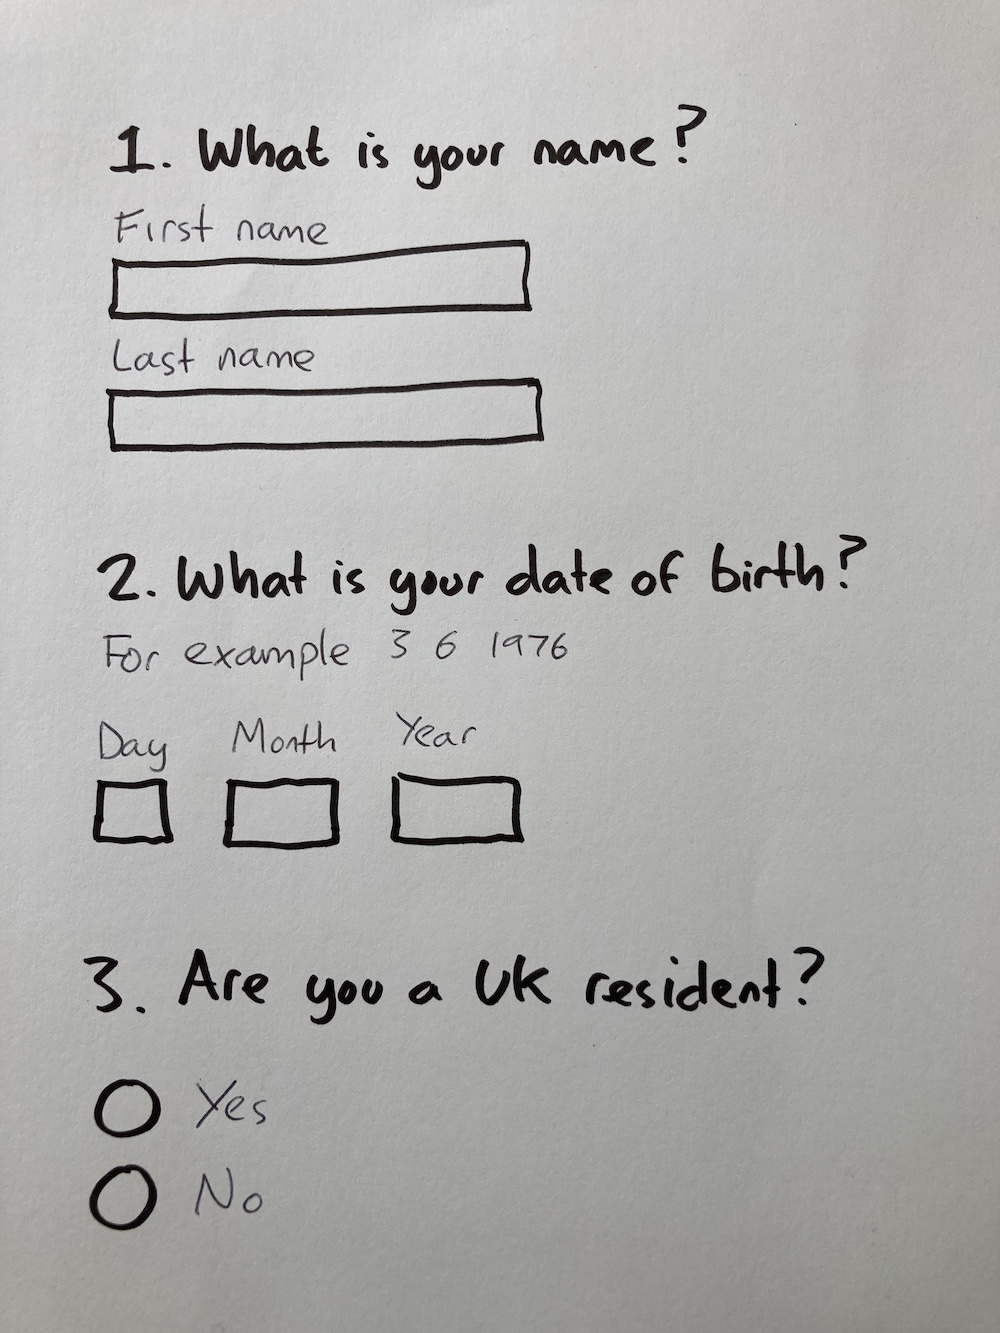 1. What is your name?
First name
Last name
2. What is your date of birth?
For example 3 6 1976
Day Month Year
3. Are you a UK resident?
Yes
No